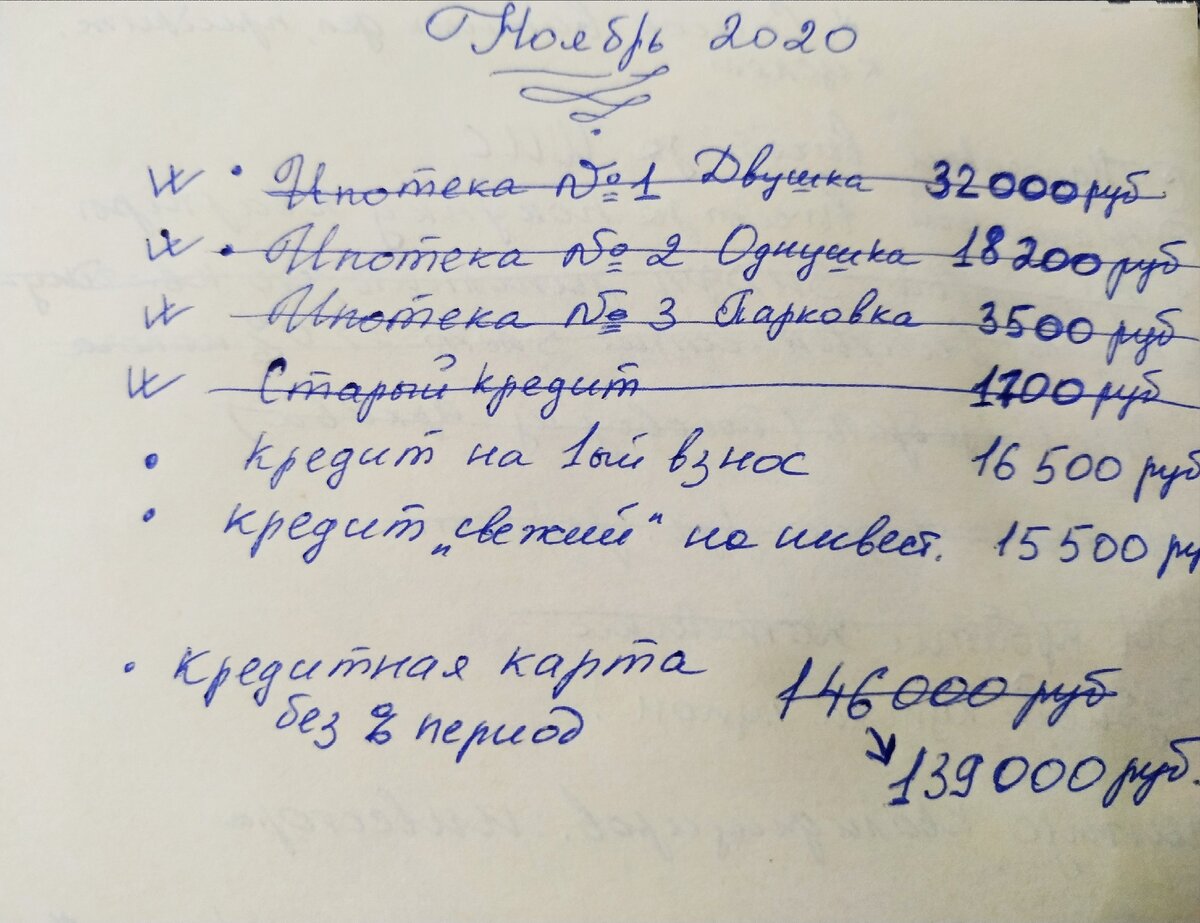 Ноябрь 2020
Ипотека № 1 Двушка 32000 руб
Ипотека № 2 Однушка 18200 руб
Ипотека № 3 Парковка 3500 руб
Старый кредит 1700 руб
кредит на 1ый взнос 16 500 руб
кредит „свежий" на инвест. 15 500 ру
Кредитная карта 146000 руб
без % период
139000 руб.